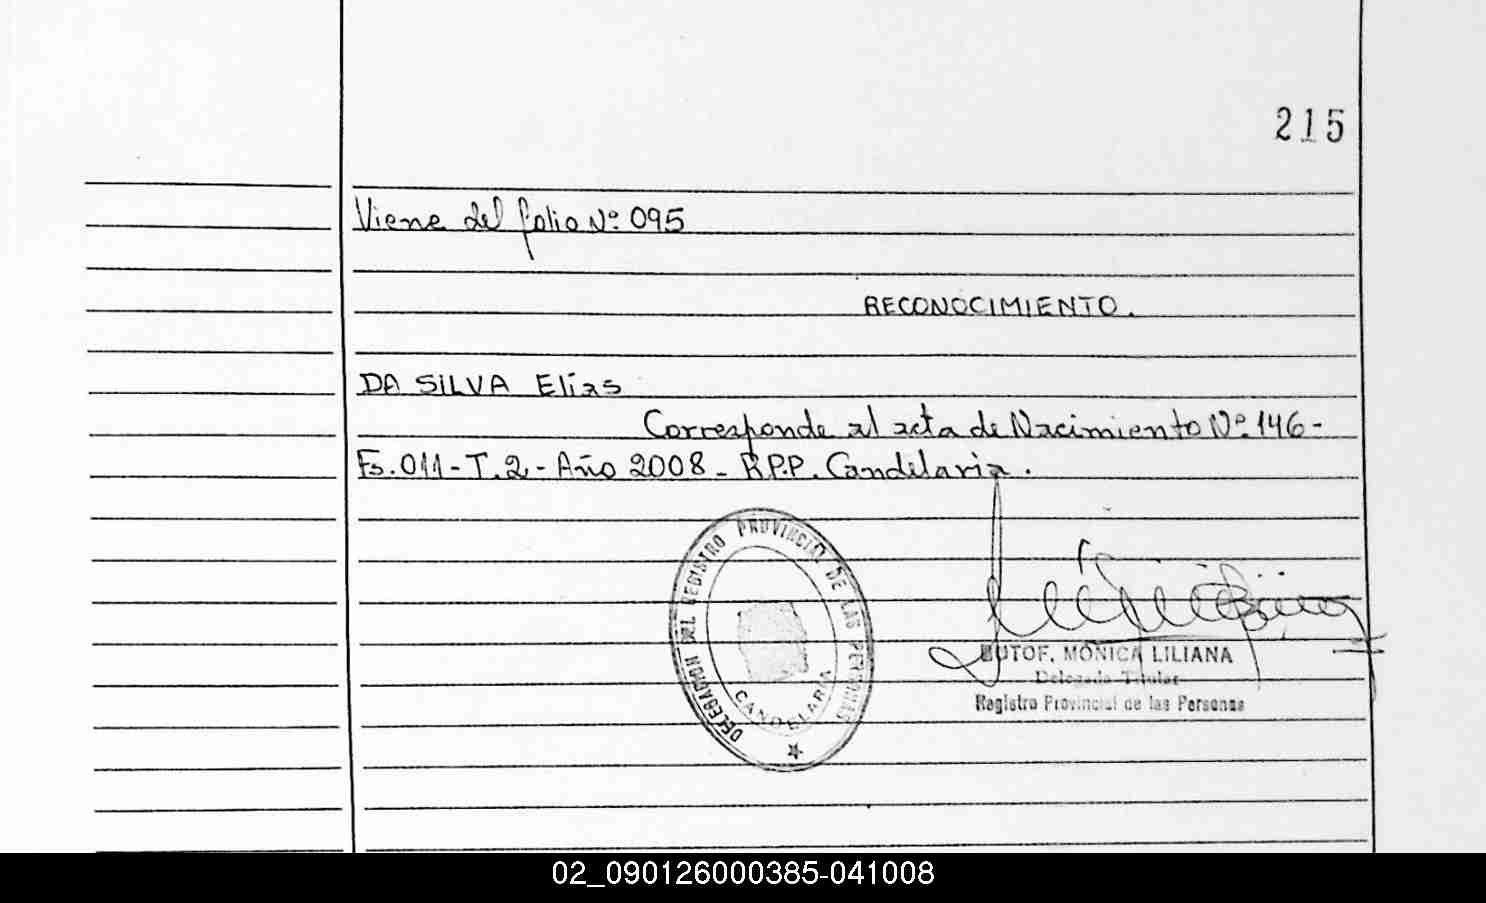 215
Viene del folio Nº 095
RECONOCIMIENTO.
DA SILVA Elias
Corresponde al acta de Nacimiento Nº 146-
Fs. 011-T. 2-Año 2008- R.P.P. Candelaria.
DELEGACION DEL REGISTRO PROVINCIAL DE LAS PERSONAS
CANDELARIA
BUTOF, MÓNICA LILIANA
Delegada Titular
Registro Provincial de las Personas
02_090126000385-041008